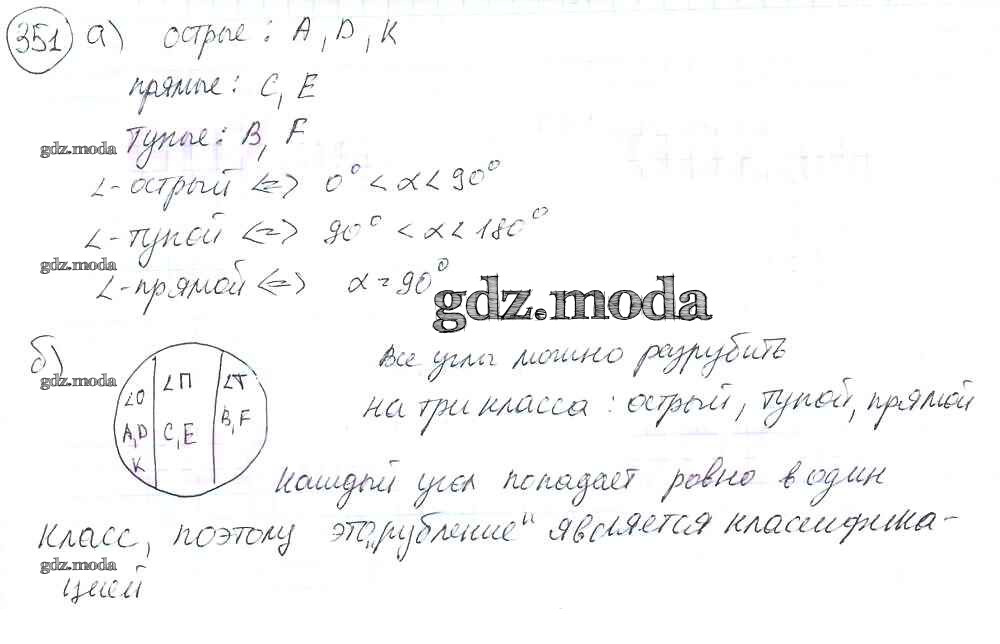 351 а) острые: A, D, K
прямые: C, E
Тупые: B, F
gdz.moda
∠-острый <=> 0° < α < 90°
∠-тупой <=> 90° < α < 180°
gdz.moda
∠-прямой <=> α = 90°
gdz.moda
б)
gdz.moda
∠О
A, D
K
∠П
C, E
∠Т
B, F
Все углы можно разрубить
на три класса: острый, тупой, прямой
Каждый угол попадает ровно в один
класс, поэтому это „рубление" является классифика-
gdz.moda
цией